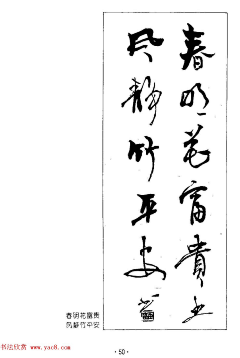 春明花富贵
风静竹平安
春明花富贵
风静竹平安
·50·
书法欣赏
www.yac8.com